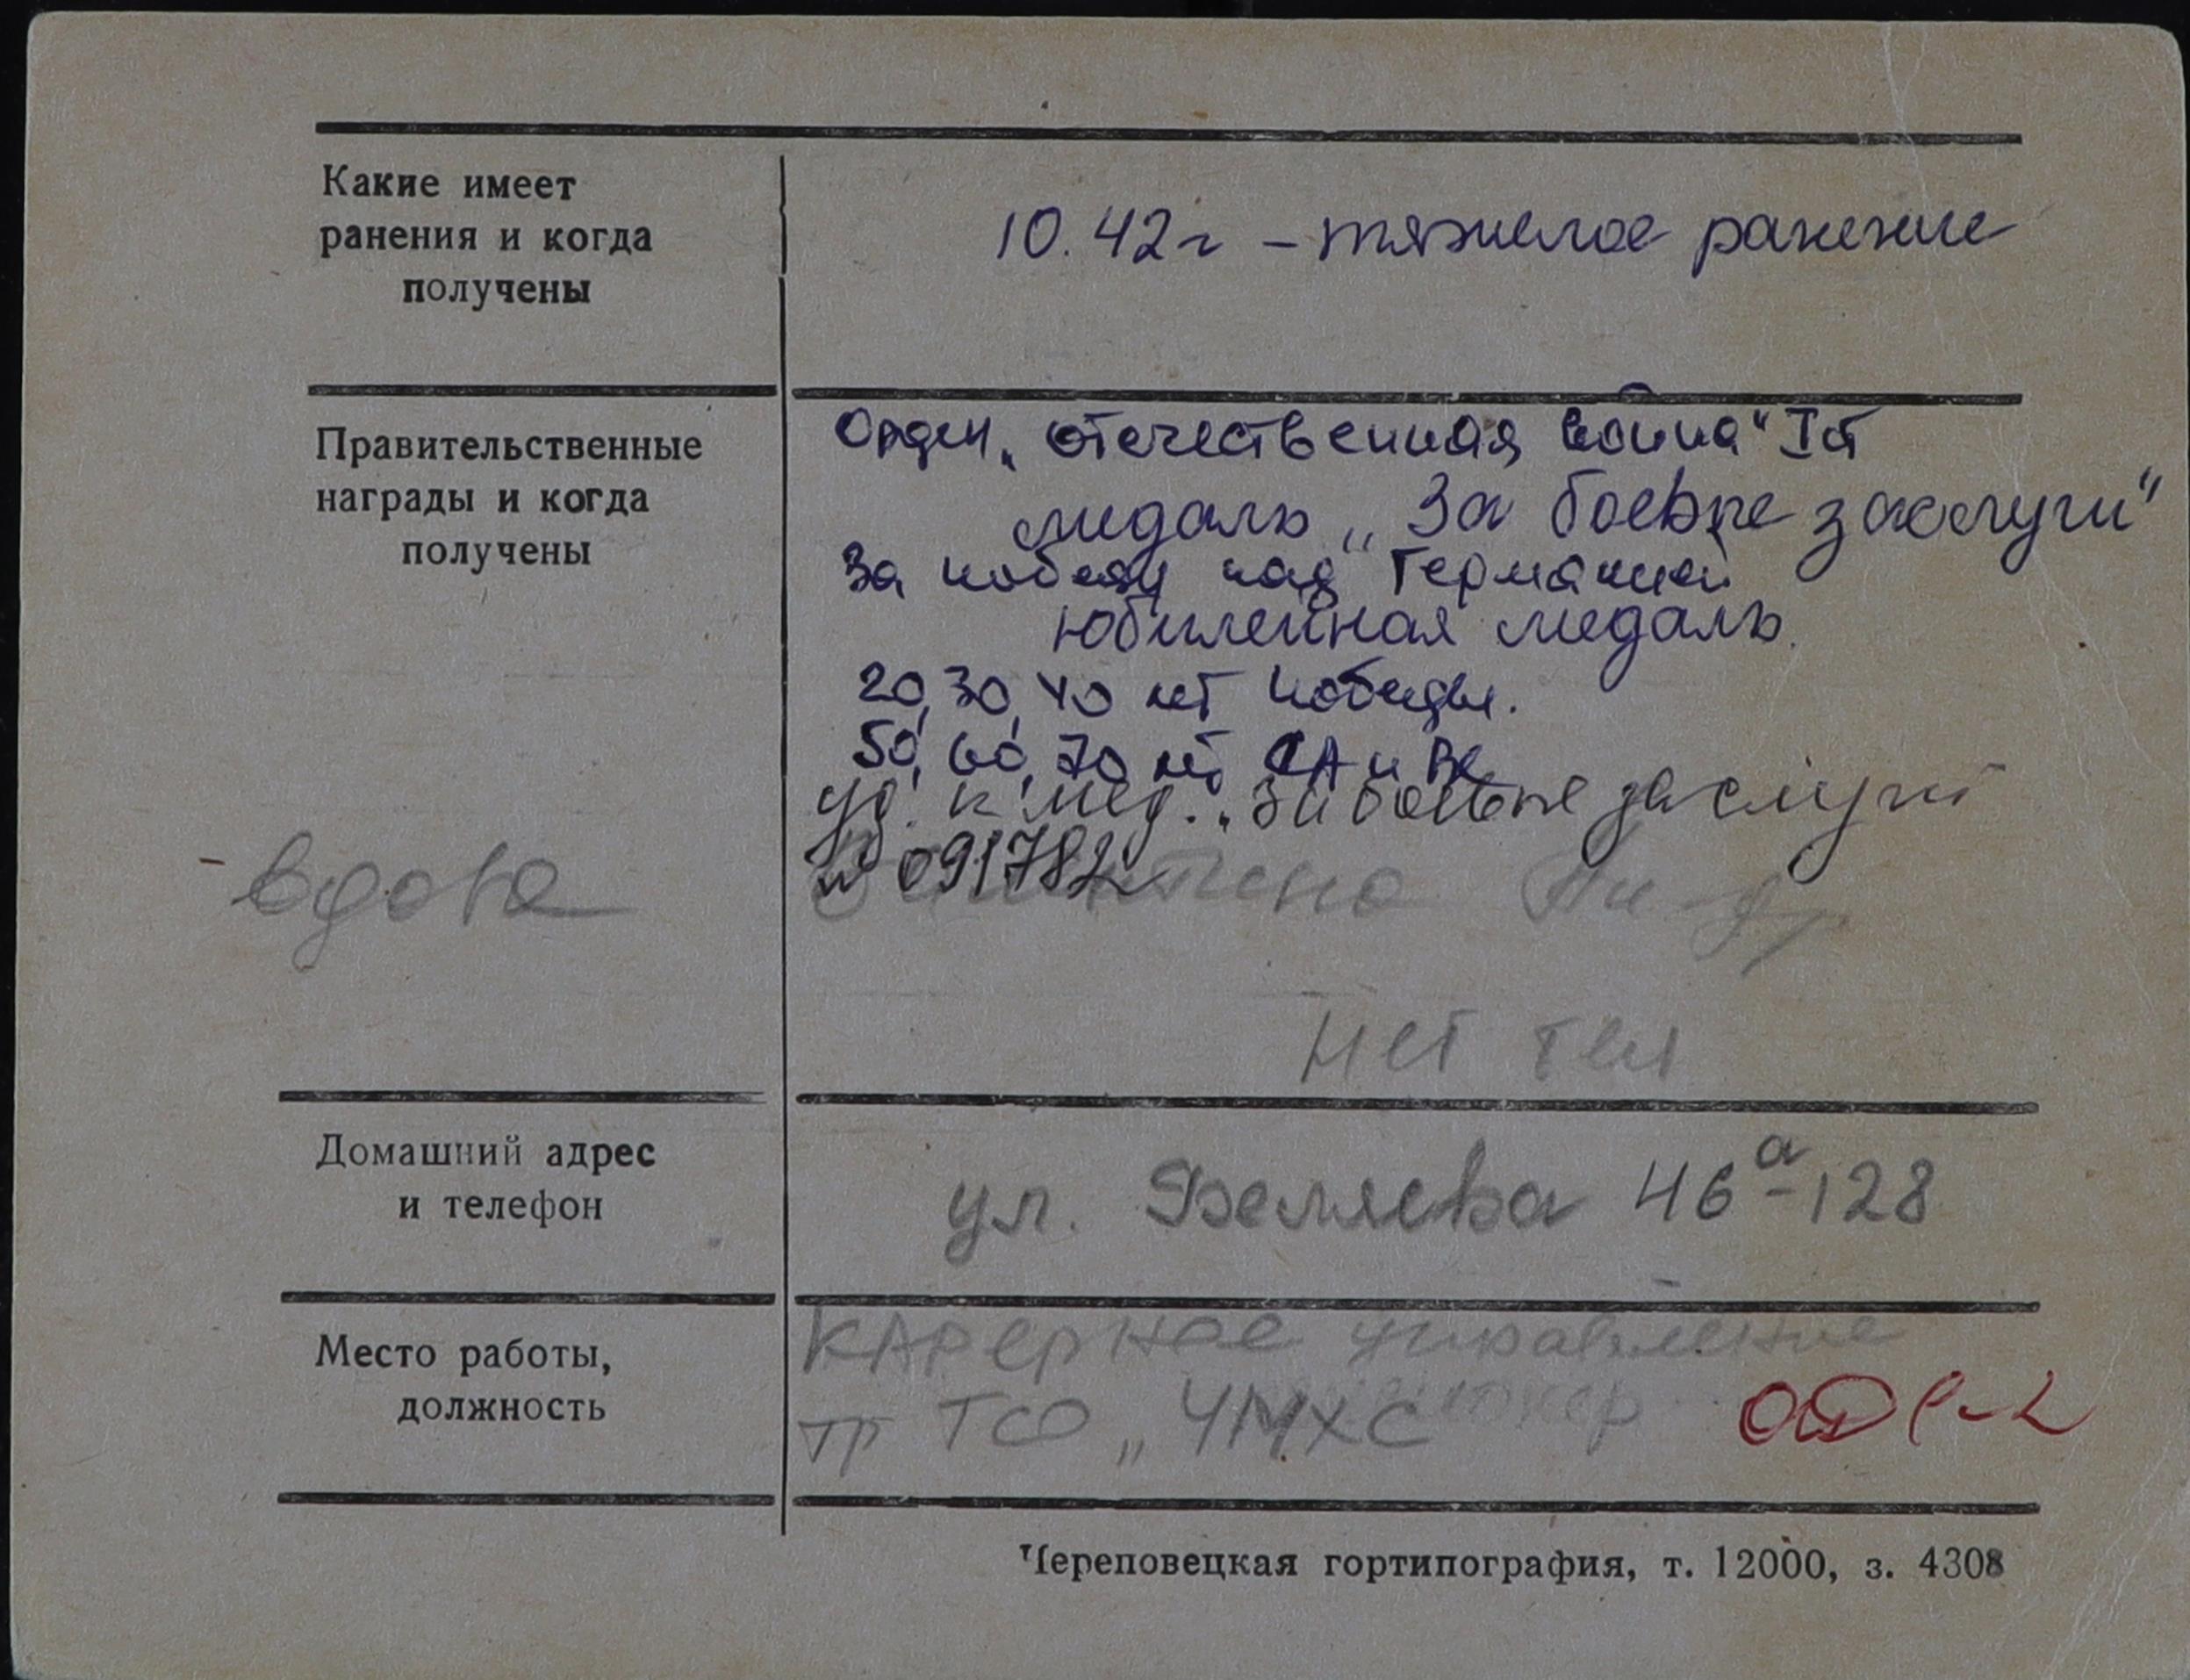 Какие имеет
ранения и когда
получены
10.42г – тяжелое ранение
Правительственные
награды и когда
получены
Орден „отечественная война" I ст
медаль „За боевые заслуги"
За победу над Германией
юбилейная медаль.
20, 30, 40 лет победы.
50, 60, 70 лет СА и ВС
уд. к мед. „За боевые заслуги
№ 091782
вдова
нет тел
Домашний адрес
и телефон
ул. Беляева 46а-128
Место работы,
должность
Карерное управление
тр ТСО „ЧМХС
Череповецкая гортипография, т. 12000, з. 4308